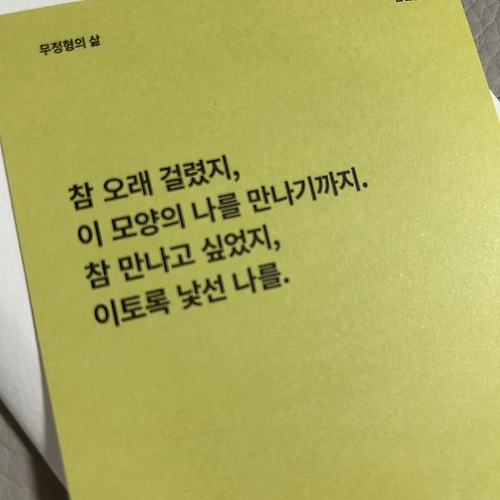 무정형의 삶
참 오래 걸렸지,
이 모양의 나를 만나기까지.
참 만나고 싶었지,
이토록 낯선 나를.